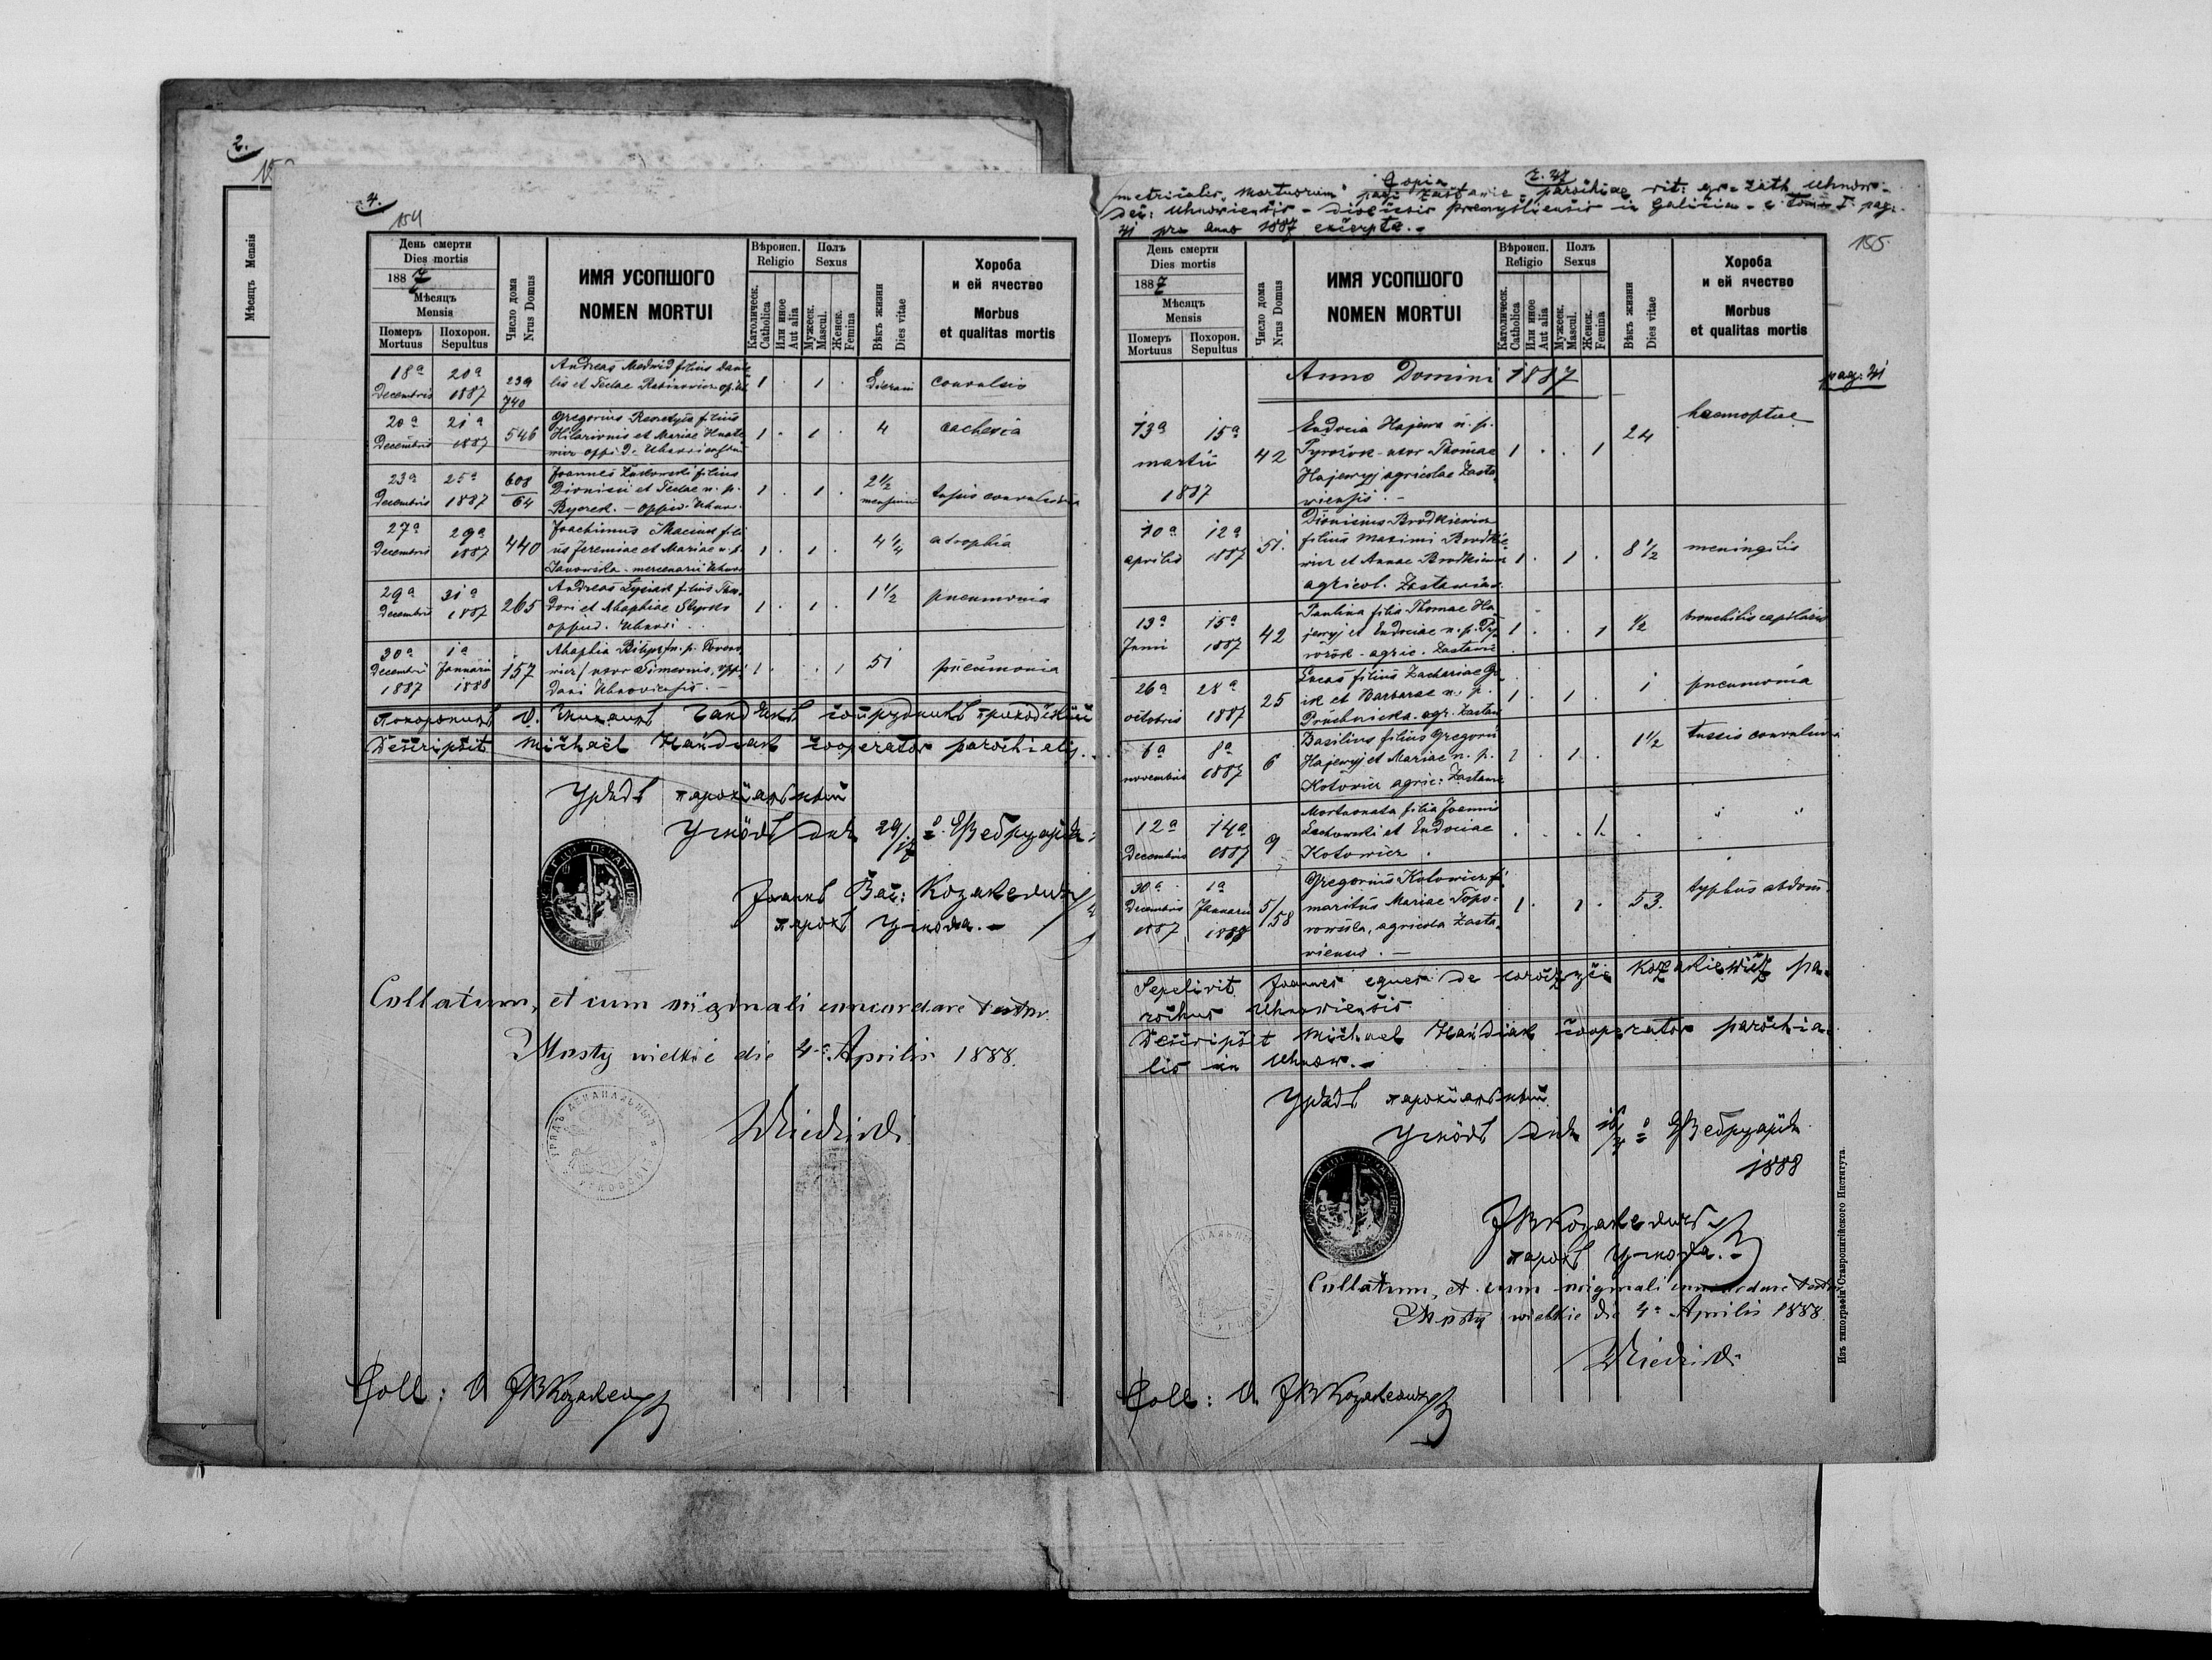 2.
Мѣсяць Mensis
4.
154
День смерти
Dies mortis
1887
Мѣсяць
Mensis
Померъ Mortuus
Похорон. Sepultus
Число дома
Nrus Domus
ИМЯ УСОПШОГО
NOMEN MORTUI
Вѣроисп.
Religio
Католическ.
Catholica
Или иное
Aut alia
Полъ
Sexus
Мужеск.
Mascul.
Женск.
Femina
Вѣкъ жизни
Dies vitae
Хороба
и ей ячество
Morbus
et qualitas mortis
18ª Decembris 20ª 1887 239/740 Andreas Medwid filius Dani-
lis et Teclae 1 . 1 . convulsio
20ª Decembris 21ª 1887 546 Gregorius filius
Hilarionis et Mariae Hnate
wicz oppid. Uhnoviensium 1 . 1 . 4 cachexia
23ª Decembris 25ª 1887 608/64 Joannes Laskowski filius
Dionisii et Teclae n. p.
oppid. Uhnov. 1 . 1 . 2½ mensium tussis convulsiva
27ª Decembris 29ª 1887 440 Joachimus fili
us Jeremiae et Mariae n. p.
Janowska - mercenarii Uhnov. 1 . 1 . 4¼ atrophia
29ª Decembris 31ª 1887 265 Andreas filius Theo-
dori et Ahaphiae
oppid. Uhnovi. 1 . 1 . 1½ pneumonia
30ª Decembris 1887 1ª Januarii 1888 157 Ahaphia n. p.
wicz / uxor Simeonis, oppi-
dani Uhnoviensis. - 1 . . 1 51 pneumonia
Похоронилъ о. Михаилъ Гандякъ сотрудникъ
Descripsit Michael Handiak cooperator parochialis.
Урядъ парохіальный
Угновъ дня 29/17 Февруарія
Іоаннъ Вас: Козакевичъ
парохъ Угнова. -
Collatum, et cum originali concordare testor.
Mosty wielkie die 4ª Aprilis 1888.
Coll:
Copia
metricalis „Mortuorum" pagi Zastawie - parochiae rit: gr: cath. Uhnow -
Dec: Uhnoviensis - Dioecesis Premysliensis in Galicia - e tomo I. pag:
41 pro anno 1887 excerpta. -
155
День смерти
Dies mortis
1887
Мѣсяць
Mensis
Померъ Mortuus
Похорон. Sepultus
Число дома
Nrus Domus
ИМЯ УСОПШОГО
NOMEN MORTUI
Вѣроисп.
Religio
Католическ.
Catholica
Или иное
Aut alia
Полъ
Sexus
Мужеск.
Mascul.
Женск.
Femina
Вѣкъ жизни
Dies vitae
Хороба
и ей ячество
Morbus
et qualitas mortis
Anno Domini 1887
pag: 41
13ª 15ª martii 1887 42 Eudocia Hajewa n. p.
Pyrożok - uxor Thomae
Hajewyj agricolae Zasta-
wiensis. - 1 . . 1 24 haemoptue
10ª aprilis 12ª 1887 51. Dionisius Brodkiewicz
filius Maximi Brodkie
wicz et Annae Brodkiewicz
agricol. Zastawien. 1 . 1 . 8½ meningitis
13ª Junii 15ª 1887 42 Paulina filia Thomae Ha
jewyj et Eudociae n. p. Py-
rożok - agric. Zastawie 1 . . 1 ½ bronchitis capilaris
26ª octobris 28ª 1887 25 Lucas filius Zachariae
et Barbarae n. p.
Pruchnicka. agr. Zastaw 1 . 1 . 1 pneumonia
6ª novembris 8ª 1887 6 Basilius filius Gregorii
Hajewyj et Mariae n. p.
Kotowicz agric: Zastawie 1 . 1 . 1½ tussis convulsiva
12ª Decembris 14ª 1887 9 Mortuonata filia Joannis
Lachowski et Eudociae
Kotowicz . . . . 1.
30ª Decembris 1887 1ª Januarii 1888 5/58 Gregorius Kotowicz
maritus Mariae Topo-
rowska, agricola Zasta-
wiensis. - 1 . 1 . 53. typhus abdom.
Sepelivit Joannes eques de Kozakiewicz pa-
rochus Uhnowiensis
Descripsit Michael Handiak cooperator parochia-
lis in Uhnow. -
Урядъ парохіальный
Угновъ дня Февруарія
1888
ІВКозакевичъ
парохъ Угнова. -
Collatum, et cum originali concordare testor
Mosty wielkie die 4ª Aprilis 1888.
Coll:
Изъ типографіи Ставропигійского Института.